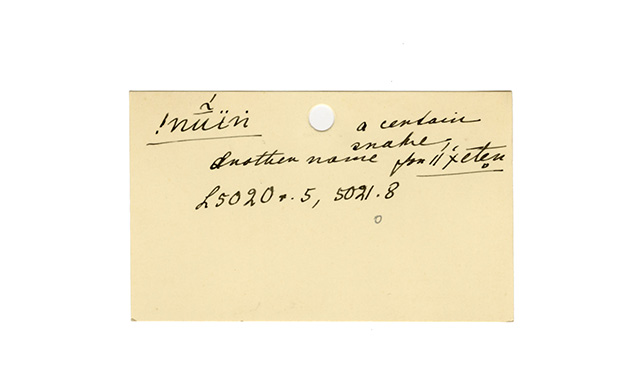 !nũïn
a certain
snake,
Another name for ǁχeten
L5020 r. 5, 5021. 8